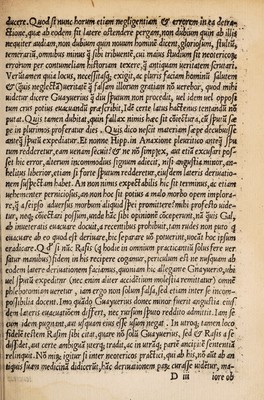 ducere. Quod si nunc horum etiam negligentiam & errorem in ea detra-
ctione, quæ ab eodem sit latere ostendere pergam, non dubium quin ab illis
nequiter audiam, non dubium quin nouum hominē dicent, gloriosum, stultū,
temerariū, omnibus minus q̃ sibi tribuentē, cui maius studium sit neotericorū
errorem per contumeliam historiam texere, q̃ antiquam veritatem scrutari.
Verūtamen quia locus, necessitasq; exigit, ac pluris faciam hominū salutem
& (quæ neglecta) veritatē q̃ falsam illorum gratiam nō verebor, quod mihi
videtur dicere Gnayuerius q̃ diu sputum non procedit, vel idem vel opposi
tum crus potius euacuandū præscribit, Id certe latus hactenus tentandū nō
putat. Quis tamen dubitat, quin fallax nimis hæc sit cōiectura, cū sputū sæ
pe in plurimos proferatur dies. Quis dico nescit materiam sæpe decubuisse
anteq̃ sputū expediatur. Et nonne Hipp. in Anaxione pleuritico anteq̃ spu
tum redderetur, eam venam secuit? & ne nō simplex, aut etiā excusari pos-
set hic error, alterum incommodius signum adiecit, nisi angustia minor, an-
helitus liberior, etiam si forte sputum redderetur, eiusdem lateris deriuatio-
nem suspectam habet. An non nimis expectabilis hic sit terminus, ac etiam
vehementer perniciosus, an non hoc sit potius a malo morbo opem implora-
re, q̃ aseipso aduersus morbum aliquid spei promittere? mihi profecto vide-
tur, neq; cōiectari possum, unde hæc sibi opinionē cōceperunt, nā quis Gal,
ab inueteratis euacuare docuit, a recentibus prohibuit, iam rudes non puto q̃
euacuare ab eo quod est deriuare, hic separare nō potuerint, uoluit hoc ipsum
eradicare. Q̃ si nūc Rasis (q̃ hodie in omnium practicantiū solus fere ver
satur manibus) fidem in his recipere cogamur, periculum est ne nusquam ab
eodem latere deriuationem faciamus, quoniam hic allegante Gnayuerio, vbi
vel sputū expeditur (nec enim aliter accidētium molestia remittatur) omnē
phlebotomiam ueretur, iam ergo non solum falsū, sed etiam sententiæ se incom-
possibilia docent. Imo quādo Gnayuerius donec minor fuerit angustia eiusdem
lateris euacuationem differt, nec rursum sputo reddito admittit. Iam se
cum idem pugnant, aut usquam eius esse usum negat. In utroq; tamen loco
fidelē testem Rasim sibi citat, quare nō solū Gnayuerius, sed & Rasis a se
dissidet, aut certe ambiguū iuerq; tradit, ac in utrūq; parte ancipitē sententiā
relinquit. Nō mirū, igitur si inter neotericos practici, qui ab his, nō aūt ab an
tiquis suam medicinā didicerūt, hāc deriuationem parū curasse videtur, ma-
D iii iore ob